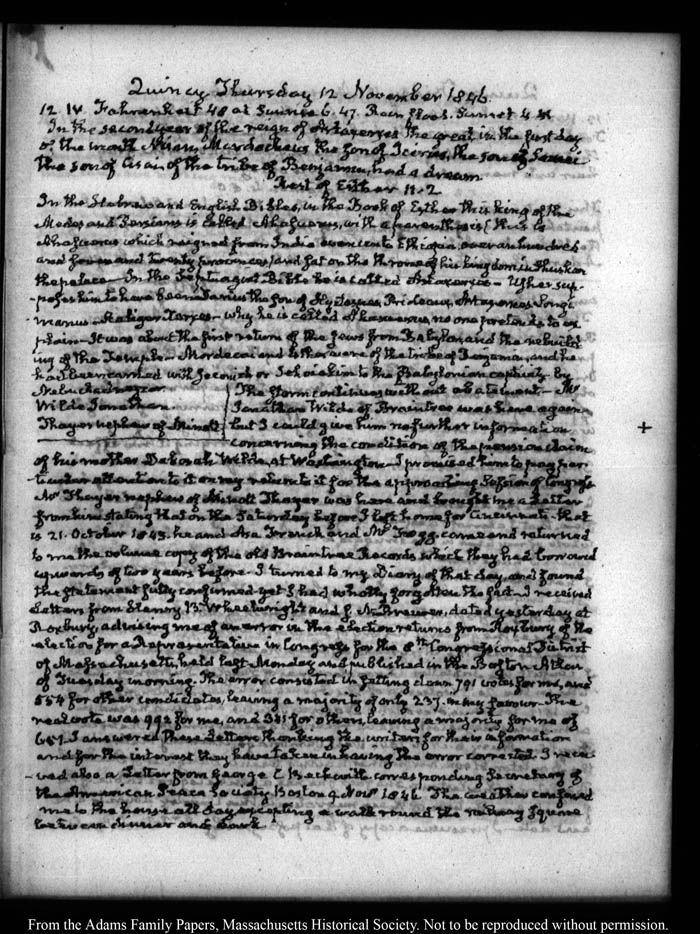 Quincy Thursday 12 November 1846.
12. IV. Fahrenheit 40 at Sunrise 6.47. Rain Sunset 4
In the second year of the reign of Artaxerxes the great in the first day
of the month Nisan, Mardocheus the son of the son of Semei
the son of Cisai, of the tribe of Benjamin, had a dream
Rest of Esther 11.2
In the Hebrew and English Bibles, in the Book of Esther this king of the
Medes and Persians is called Ahasuerus, with a parenthesis (this is
Ahasuerus which reigned from India even unto Ethiopia over an hundred
and seven and twenty provinces) and sat on the throne of his kingdom in Shushan
the palace. In the Septuagint Bible he is called Artaxerxes—Usher sup-
poses him to have been Darius the son of Hystaspes, Prideaux, Artaxerxes Longi-
manus—Scaliger Xerxes—why he is called Ahasuerus, no one pretends to ex-
plain—It was about the first return of the Jews from Babylon and the rebuild-
ing of the Temple—Mordecai and Esther were of the tribe of Benjamin, and he
had been carried with Jeconiah or Jehoiakim to the Babylonian captivity by
Nebuchadnezzar
Wilde Jonathan
Thayer nephew of Minott
The storm continues without abatement—Mr
Jonathan Wilde of Braintree was here again
but I could give him no further information
concerning the condition of the pension claim
of his mother Deborah Wilde, at Washington—I promised him to pay par-
ticular attention to it on my return to it for the approaching Session of Congress
Mr Thayer nephew of Minott Thayer was here and brought me a Letter
from him stating that on the Saturday before I left home for Cincinnati that
is 21. October 1843. he and Asa French and Mr came and returned
to me the volume copy of the old Braintree Records which they had borrowed
upwards of two years before—I turned to my Diary of that day, and found
the statement fully confirmed yet I had wholly forgotten the fact—I received
Letters from Henry B. Wheelwright and J. A. Brewer, dated yesterday at
Roxbury, advising me of an error in the election returns from Roxbury of the
election for a Representative in Congress for the 8th Congressional District
of Massachusetts, held last Monday and published in the Boston Atlas
of Tuesday morning. The error consisted in setting down 791 votes for me, and
554 for other candidates, leaving a majority of only 237. in my favour—The
real vote was 992 for me, and for others, leaving a majority for me of
I answered these Letters thanking the writers for their information
and for the interest they have taken in having the error corrected. I recei-
ved also a Letter from George C Beckwith corresponding Secretary of
the American Peace Society Boston 9. Novr 1846. The weather confined
me to the house all day excepting a walk round the railway Square
between dinner and dusk
From the Adams Family Papers, Massachusetts Historical Society. Not to be reproduced without permission.